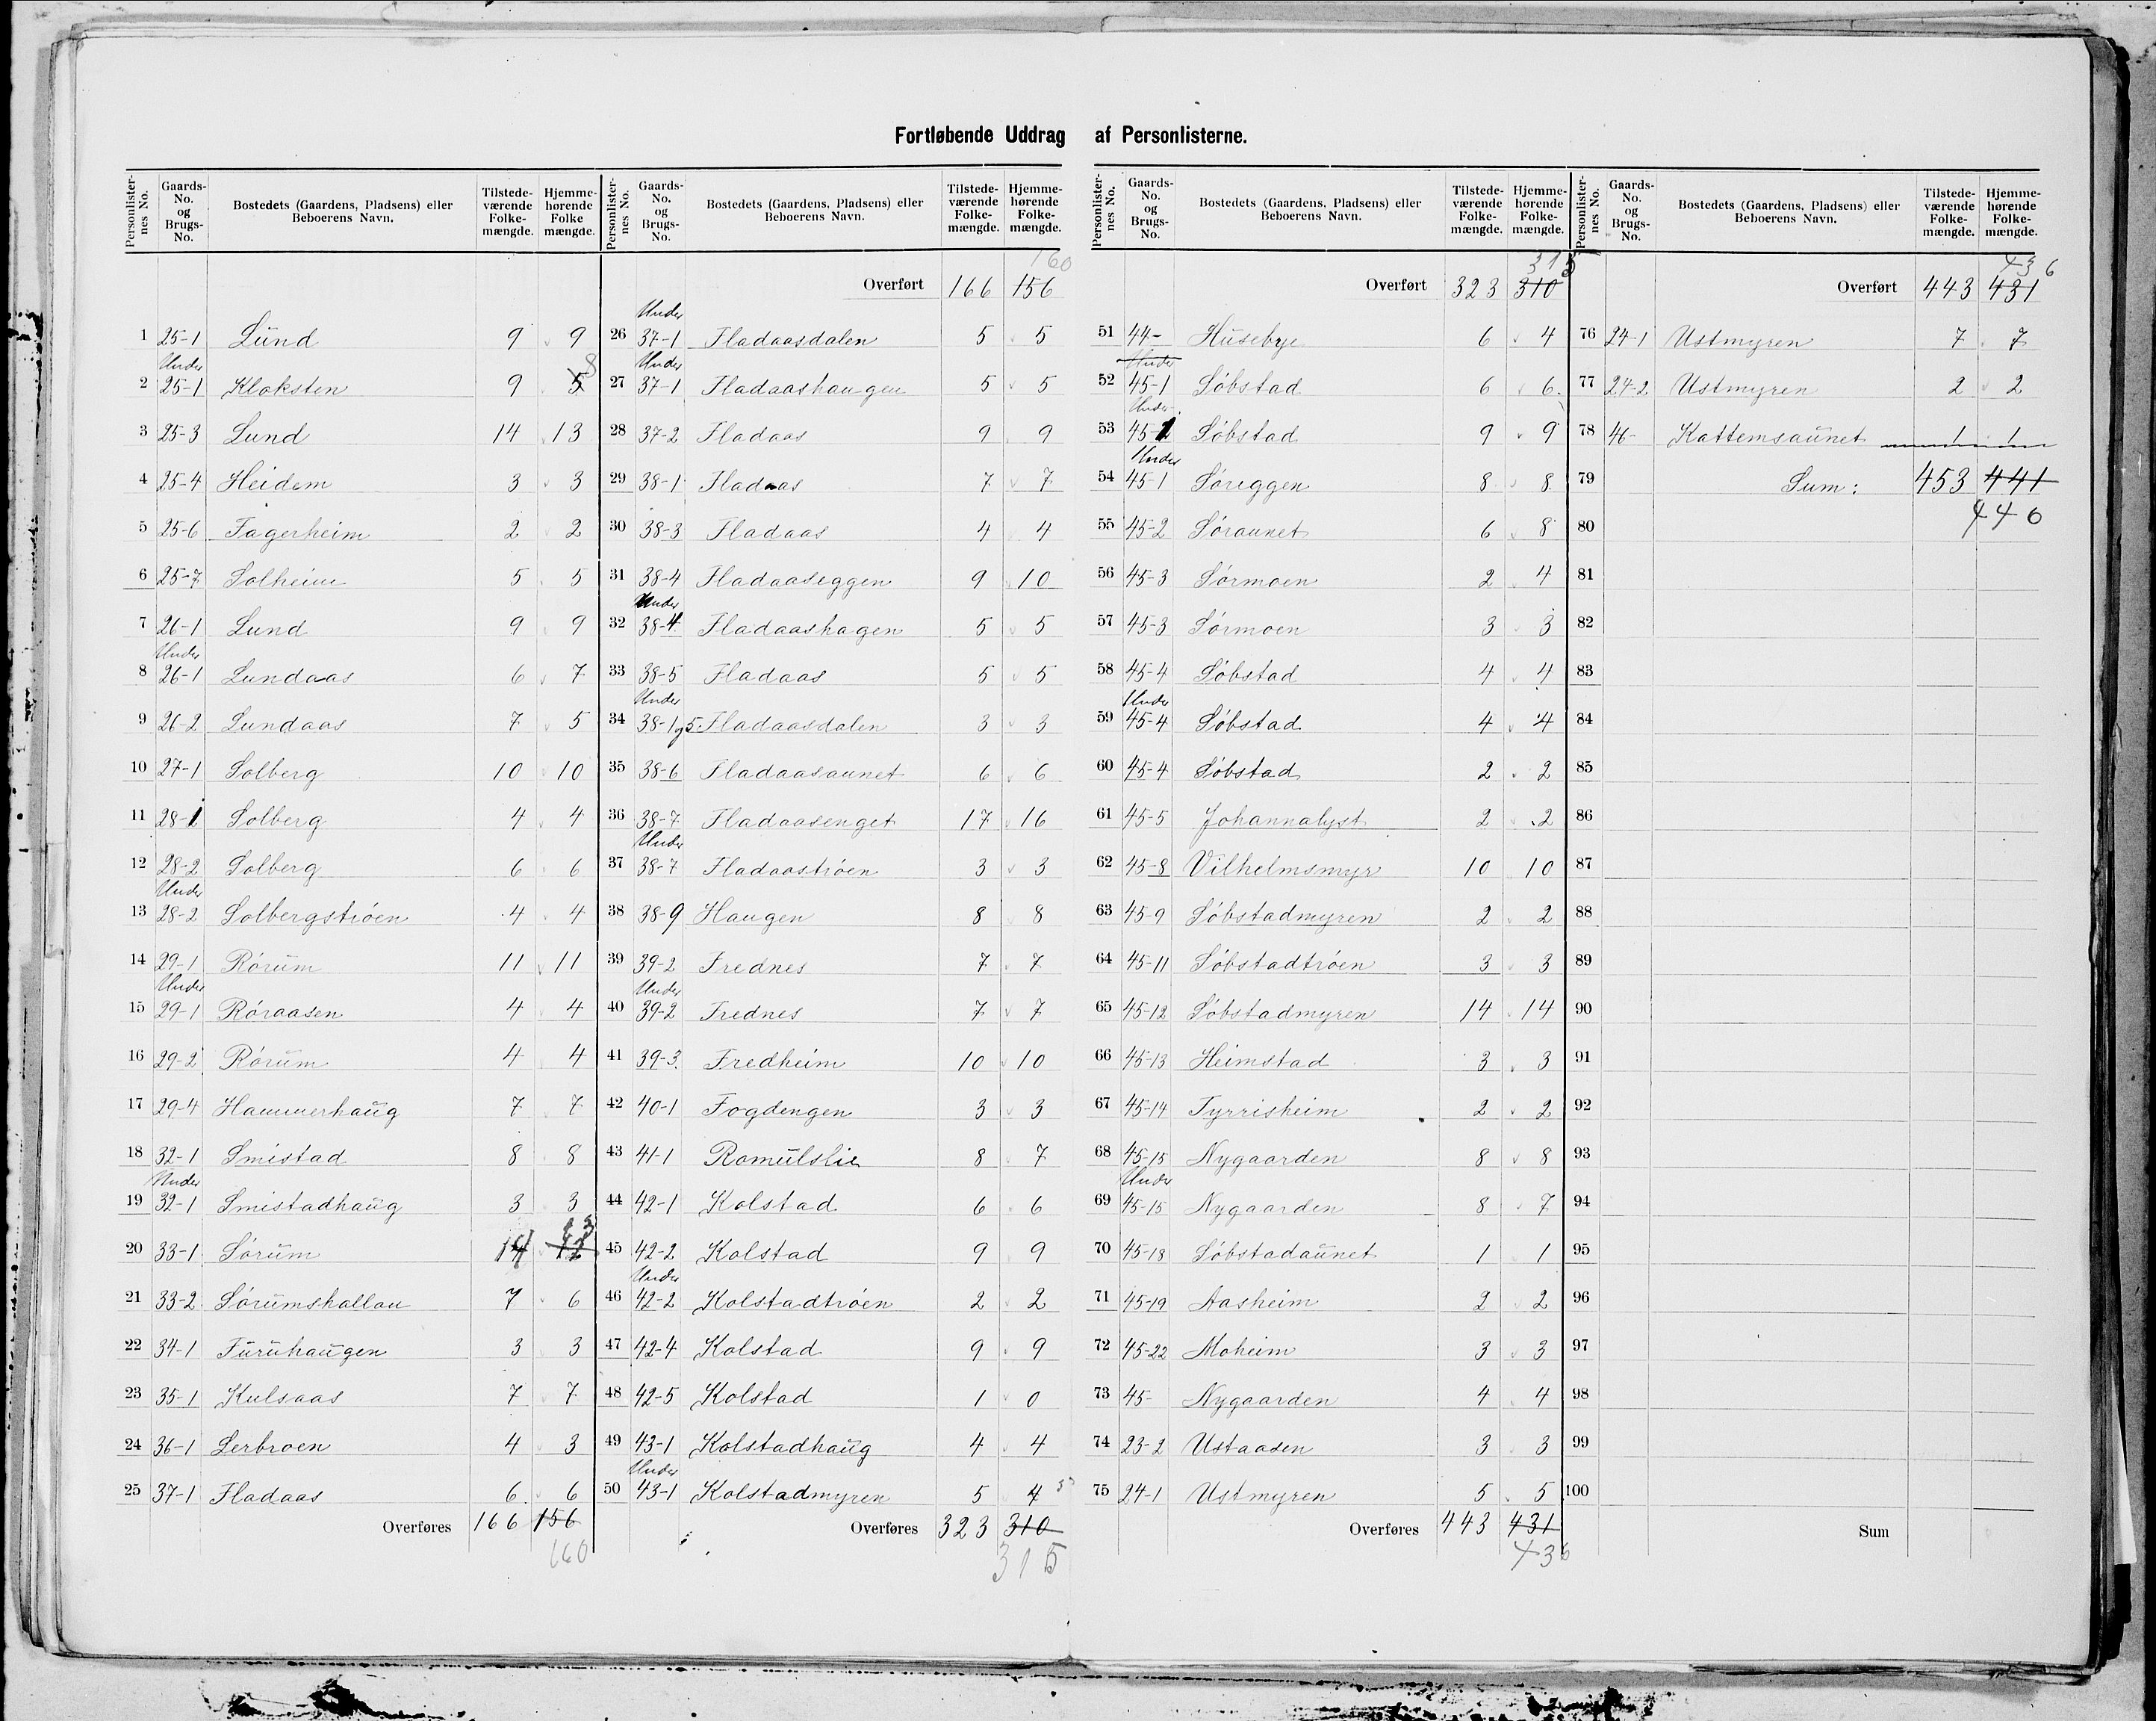 Fortløbende Uddrag af Personlisterne.
Personlisternes No. Gaards-No. og Brugs-No. Bostedets (Gaardens, Pladsens) eller Beboerens Navn. Tilstedeværende Folkemængde. Hjemmehørende Folkemængde.
1 25-1 Lund 9 9
2 Under 25-1 Kloksten 9 5 8
3 25-3 Lund 14 13
4 25-4 Heidem 3 3
5 25-6 Fagerheim 2 2
6 25-7 Solheim 5 5
7 26-1 Lund 9 9
8 Under 26-1 Lundaas 6 7
9 26-2 Lundaas 7 5
10 27-1 Solberg 10 10
11 28-1 Solberg 4 4
12 28-2 Solberg 6 6
13 Under 28-2 Solbergstrøen 4 4
14 29-1 Rørum 11 11
15 Under 29-1 Røraasen 4 4
16 29-2 Rørum 4 4
17 29-4 Hammerhaug 7 7
18 32-1 Smistad 8 8
19 Under 32-1 Smistadhaug 3 3
20 33-1 Sørum 14 12 13
21 33-2 Sørumshallan 7 6
22 34-1 Furuhaugen 3 3
23 35-1 Kulsaas 7 7
24 36-1 Lerbroen 4 3
25 37-1 Fladaas 6 6
Overføres 166 156
160
Personlisternes No. Gaards-No. og Brugs-No. Bostedets (Gaardens, Pladsens) eller Beboerens Navn. Tilstedeværende Folkemængde. Hjemmehørende Folkemængde.
160
Overført 166 156
26 Under 37-1 Fladaasdalen 5 5
27 Under 37-1 Fladaashaugen 5 5
28 37-2 Fladaas 9 9
29 38-1 Fladaas 7 7
30 38-3 Fladaas 4 4
31 38-4 Fladaaseggen 9 10
32 Under 38-4 Fladaashagen 5 5
33 38-5 Fladaas 5 5
34 Under 38-1 og 5 Fladaasdalen 3 3
35 38-6 Fladaasaunet 6 6
36 38-7 Fladaasenget 17 16
37 Under 38-7 Fladaastrøen 3 3
38 38-9 Haugen 8 8
39 39-2 Frednes 7 7
40 Under 39-2 Frednes 7 7
41 39-3. Fredheim 10 10
42 40-1 Fogdengen 3 3
43 41-1 Romulslia 8 7
44 42-1 Kolstad 6 6
45 42-2 Kolstad 9 9
46 Under 42-2 Kolstadtrøen 2 2
47 42-4 Kolstad 9 9
48 42-5 Kolstad 1 0
49 43-1 Kolstadhaug 4 4
50 Under 43-1 Kolstadmyren 5 4 5
Overføres 323 310
315
Personlisternes No. Gaards-No. og Brugs-No. Bostedets (Gaardens, Pladsens) eller Beboerens Navn. Tilstedeværende Folkemængde. Hjemmehørende Folkemængde.
315
Overført 323 310
51 44- Husebye 6 4
52 Under 45-1 Søbstad 6 6
53 Under 45-1 Søbstad 9 9
54 Under 45-1 Søreggen 8 8
55 45-2 Søraunet 6 8
56 45-3 Sørmoen 2 4
57 45-3 Sørmoen 3 3
58 45-4 Søbstad 4 4
59 Under 45-4 Søbstad 4 4
60 45-4 Søbstad 2 2
61 45-5 Johannalyst 2 2
62 45-8 Vilhelmsmyr 10 10
63 45-9 Søbstadmyren 2 2
64 45-11 Søbstadtrøen 3 3
65 45-12 Søbstadmyren 14 14
66 45-13 Heimstad 3 3
67 45-14 Tyrrisheim 2 2
68 45-15 Nygaarden 8 8
69 Under 45-15 Nygaarden 8 7
70 45-18 Søbstadaunet 1 1
71 45-19 Aasheim 2 2
72 45-22 Moheim 3 3
73 45- Nygaarden 4 4
74 23-2 Ustaasen 3 3
75 24-1 Ustmyren 5 5
Overføres 443 431
436
Personlisternes No. Gaards-No. og Brugs-No. Bostedets (Gaardens, Pladsens) eller Beboerens Navn. Tilstedeværende Folkemængde. Hjemmehørende Folkemængde.
436
Overført 443 431
76 24-1 Ustmyren 7 7
77 24-2 Ustmyren 2 2
78 46- Kattemsaunet 1 1
79 Sum: 453 441
80 446
81
82
83
84
85
86
87
88
89
90
91
92
93
94
95
96
97
98
99
100
Sum